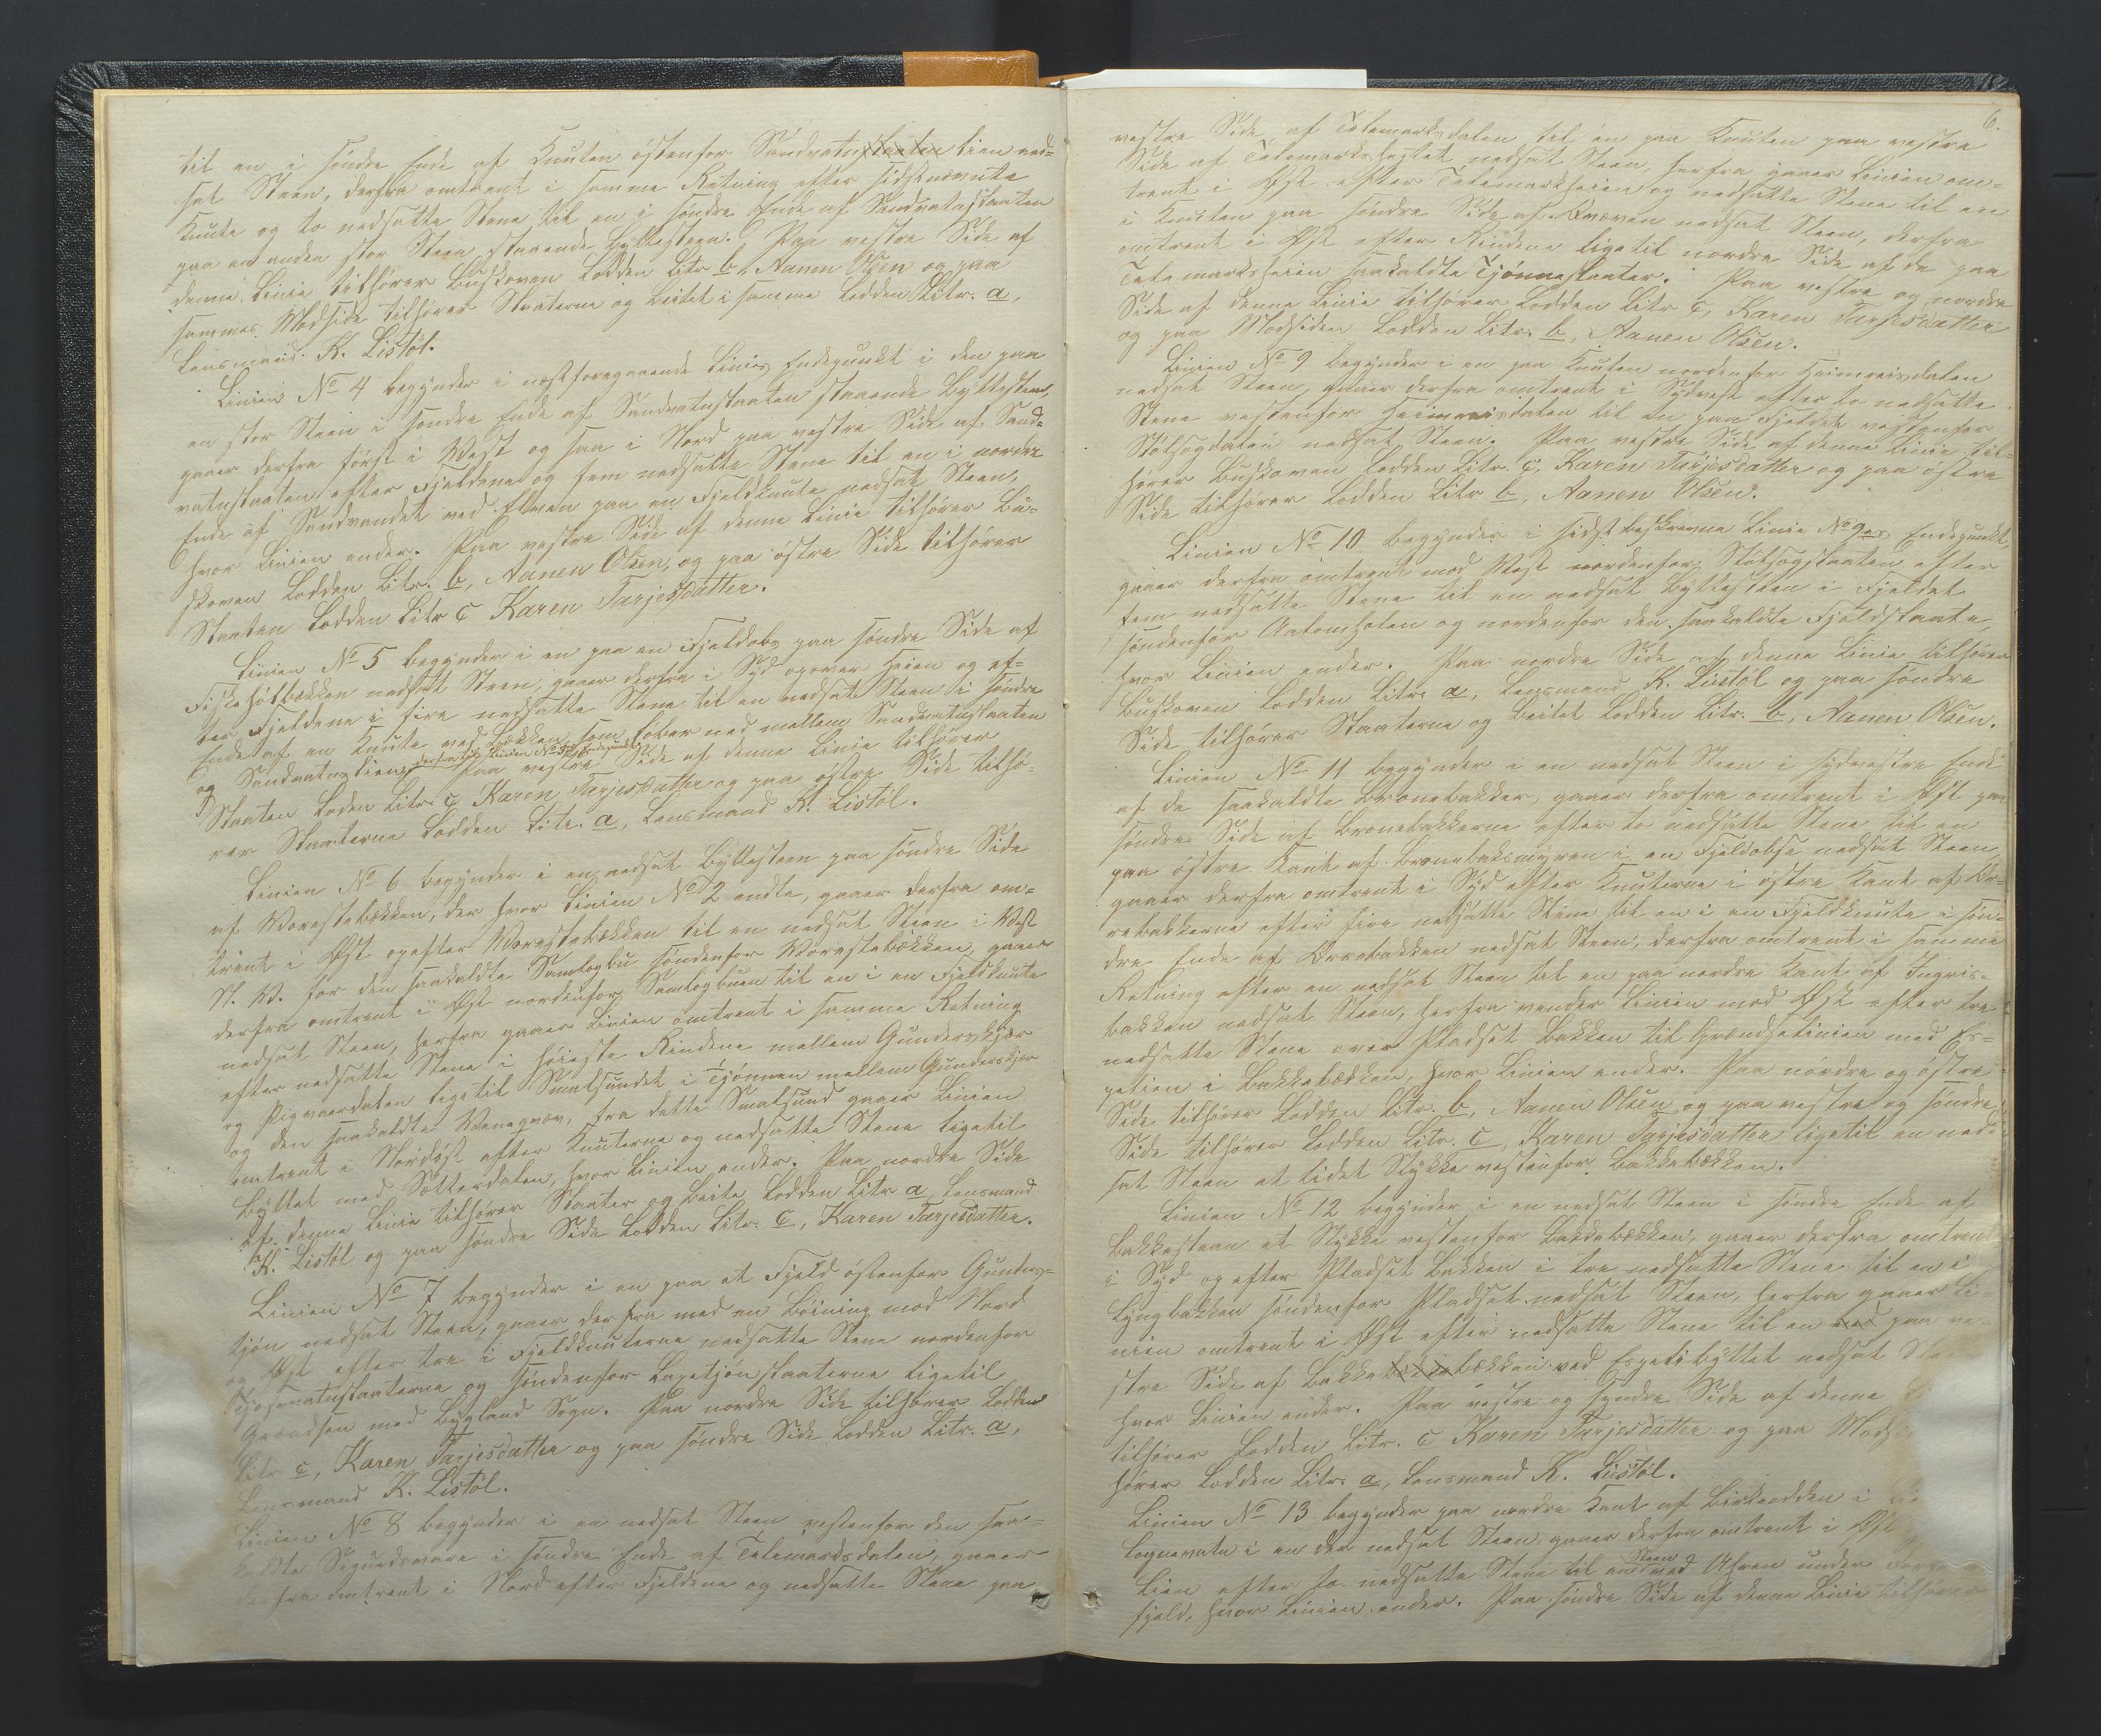 til en i søndre Ende af Knuten østenfor Sandvatnslien ned-
sat Steen, derfra omtrent i samme Retning efter sidstnævnte
Knute og to nedsatte Stene til en i søndre Ende af Sandvatnstaaten
paa en anden stor Steen staaende Byttesteen. Paa vestre Side af
denne Linie tilhører Buskoven Lodden Litr b, Aanen Olsen og paa
sammes Modside tilhører Staaterne og Beitet i samme Lodden Litr. a,
Lensmand K. Listøl.
Linien No 4 begynder i næstforegaaende Linies Endepunkt i den paa
en stor Steen i søndre Ende af Sandvatnstaaten staaende Byttesteen,
gaaer derfra først i Vest og saa i Nord paa vestre Side af Sand-
vatnstaaten efter Fjeldene og fem nedsatte Stene til en i nordre
Ende af Sandvandet ved Elven paa en Fjeldknute nedsat Steen,
hvor Linien ender. Paa vestre Side af denne Linie tilhører Bu-
skoven Lodden Litr. b, Aanen Olsen, og paa østre Side tilhører
Staaten Lodden Litr c Karen Tarjesdatter.
Linien No 5 begynder i en paa en Fjeldabs paa søndre Side af
Fiskehølbækken nedsat Steen, gaaer derfra i Syd opover Heien og ef-
ter Fjeldene i fire nedsatte Stene til en nedsat Steen i søndre
Ende af en Knute ved Bækken, som løber ned mellem Sandvatnstaaten
og Sandvatnslien, derfra til Linien No 3s Endepunkt. Paa vestre Side af denne Linie tilhører
Staaten Loden Litr. c Karen Tarjesdatter og paa østre Side tilhø-
rer Staaterne Lodden Litr. a, Lensmand K. Listøl.
Linien No 6 begynder i en nedsat Byttesteen paa søndre Side
af Vorestebækken, der hvor Linien No 2 endte, gaaer derfra om-
trent i Øst opefter Vorestebækken til en nedsat Steen i Vest
N. V. for den saakaldte Samlogbu søndenfor Vorestebækken, gaaer
derfra omtrent i Øst nordenfor Samlogbuen til en i en Fjeldknute
nedsat Steen, herfra gaaer Linien omtrent i samme Retning
efter nedsatte Stene i høieste Rindene mellem Gunderskjær
og Pigvaardalen ligetil Smalsundet i Tjønnen mellem Gunderskjær
og den saakaldte Vaneqvæv, fra dette Smalsund gaaer Linien
omtrent i Nordøst efter Knuterne og nedsatte Stene ligetil
Byttet med Sætterdalen, hvor Linien ender. Paa nordre Side
af denne Linie tilhører Staater og Beite Lodden Litr a, Lensmand
K. Listøl og paa søndre Side Lodden Litr. c, Karen Tarjesdatter.
Linien No 7 begynder i en paa et Fjeld østenfor Gunders-
tjøn nedsat Steen, gaaer derfra med en Bøining mod Nord
og Øst efter tre i Fjeldknuterne nedsatte Stene nordenfor
Tjosevatnstaaterne og søndenfor Laxetjønstaaterne ligetil
Grændsen med Bygland Sogn. Paa nordre Side tilhører Lodden
Litr c, Karen Tarjesdatter og paa søndre Side Lodden Litr. a,
Lensmand K. Listøl.
Linien No 8 begynder i en nedsat Steen vestenfor den saa-
kaldte Sigurdsvare i søndre Ende af Telemarksdalen, gaaer
derfra omtrent i Nord efter Fjeldene og nedsatte Stene paa
6.
vestre Side af Telemarksdalen til en paa Knuten paa vestre
Side af Telemarksheftet nedsat Steen, herfra gaaer Linien om-
trent i Øst efter Telemarksheien og nedsatte Stene til en
i Knuten paa søndre Side af Kræven nedsat Steen, derfra
omtrent i Øst efter Rindene ligetil nordre Side af de paa
Telemarksheien saakaldte Tjønnestaater. Paa vestre og nordre
Side af denne Linie tilhører Lodden Litr c, Karen Tarjesdatter
og paa Modsiden Lodden Litr. b, Aanen Olsen.
Linien No 9 begynder i en paa Knuten nordenfor Heimreisdalen
nedsat Steen, gaaer derfra omtrent i Sydvest efter to nedsatte
Stene vestenfor Heimreisdalen til en paa Fjeldet vestenfor
Stølsogdalen nedsat Steen. Paa vestre Side af denne Linie til-
hører Buskoven Lodden Litr. c, Karen Tarjesdatter og paa østre
Side tilhører Lodden Litr b, Aanen Olsen.
Linien No 10 begynder i sidst beskrevne Linie No 9es Endepunkt,
gaaer derfra omtrent mod Vest nordenfor Stølsogstaaten efter
fem nedsatte Stene til en nedsat Byttesteen i Fjeldet
søndenfor Aalomholen og nordenfor den saakaldte Fjeldstaate
hvor Linien ender. Paa nordre Side af denne Linie tilhører
Buskoven Lodden Litr. a, Lensmand K. Listøl og paa søndre
Side tilhører Staaterne og Beitet Lodden Litr. b, Aanen Olsen.
Linien No 11 begynder i en nedsat Steen i sydvestre Ende
af de saakaldte Bronebakker, gaaer derfra omtrent i Øst paa
søndre Side af Bronebakkerne efter to nedsatte Stene til en
paa østre Kant af Bronebaksmyren i en Fjeldabs nedsat Steen
gaaer derfra omtrent i Syd efter Knuterne i østre Kant af Or-
rebakkerne efter fire nedsatte Stene til en i en Fjeldknute i søn-
dre Ende af Orrebakken nedsat Steen, derfra omtrent i samme
Retning efter en nedsat Steen til en paa nordre Kant af Ingris-
bakken nedsat Steen, herfra vender Linien mod Øst efter tre
nedsatte Stene over Pladset Bakken til Grændselinien med Es-
petien i Bakkebækken, hvor Linien ender. Paa nordre og østre
Side tilhører Lodden Litr. b, Aanen Olsen og paa vestre og søndre
Side tilhører Lodden Litr. c, Karen Tarjesdatter ligetil en ned-
sat Steen et lidet Stykke vestenfor Bakkebækken.
Linien No 12 begynder i en nedsat Steen i søndre Ende af
Bakkesteen et Stykke vestenfor Bakkebækken, gaaer derfra omtrent
i Syd og efter Pladset Bakken i tre nedsatte Stene til en i
Lyngbakken søndenfor Pladset nedsat Steen, herfra gaaer Li-
nien omtrent i Øst efter nedsatte Stene til en paa ve-
stre Side af Bakkebækken ved Espetibyttet nedsat
hvor Linien ender. Paa vestre og søndre Side af denne
tilhører Lodden Litr. c Karen Tarjesdatter og paa
hører Lodden Litr. a, Lensmand K. Listøl.
Linien No 13 begynder paa nordre Kant af Birkeodden i
Lognevatn i en der nedsat Steen, gaaer derfra omtrent i Øst
Lien efter to nedsatte Stene til en Steen ved Uhren under
Fjeld, hvor Linien ender. Paa søndre Side af denne Linie tilhører